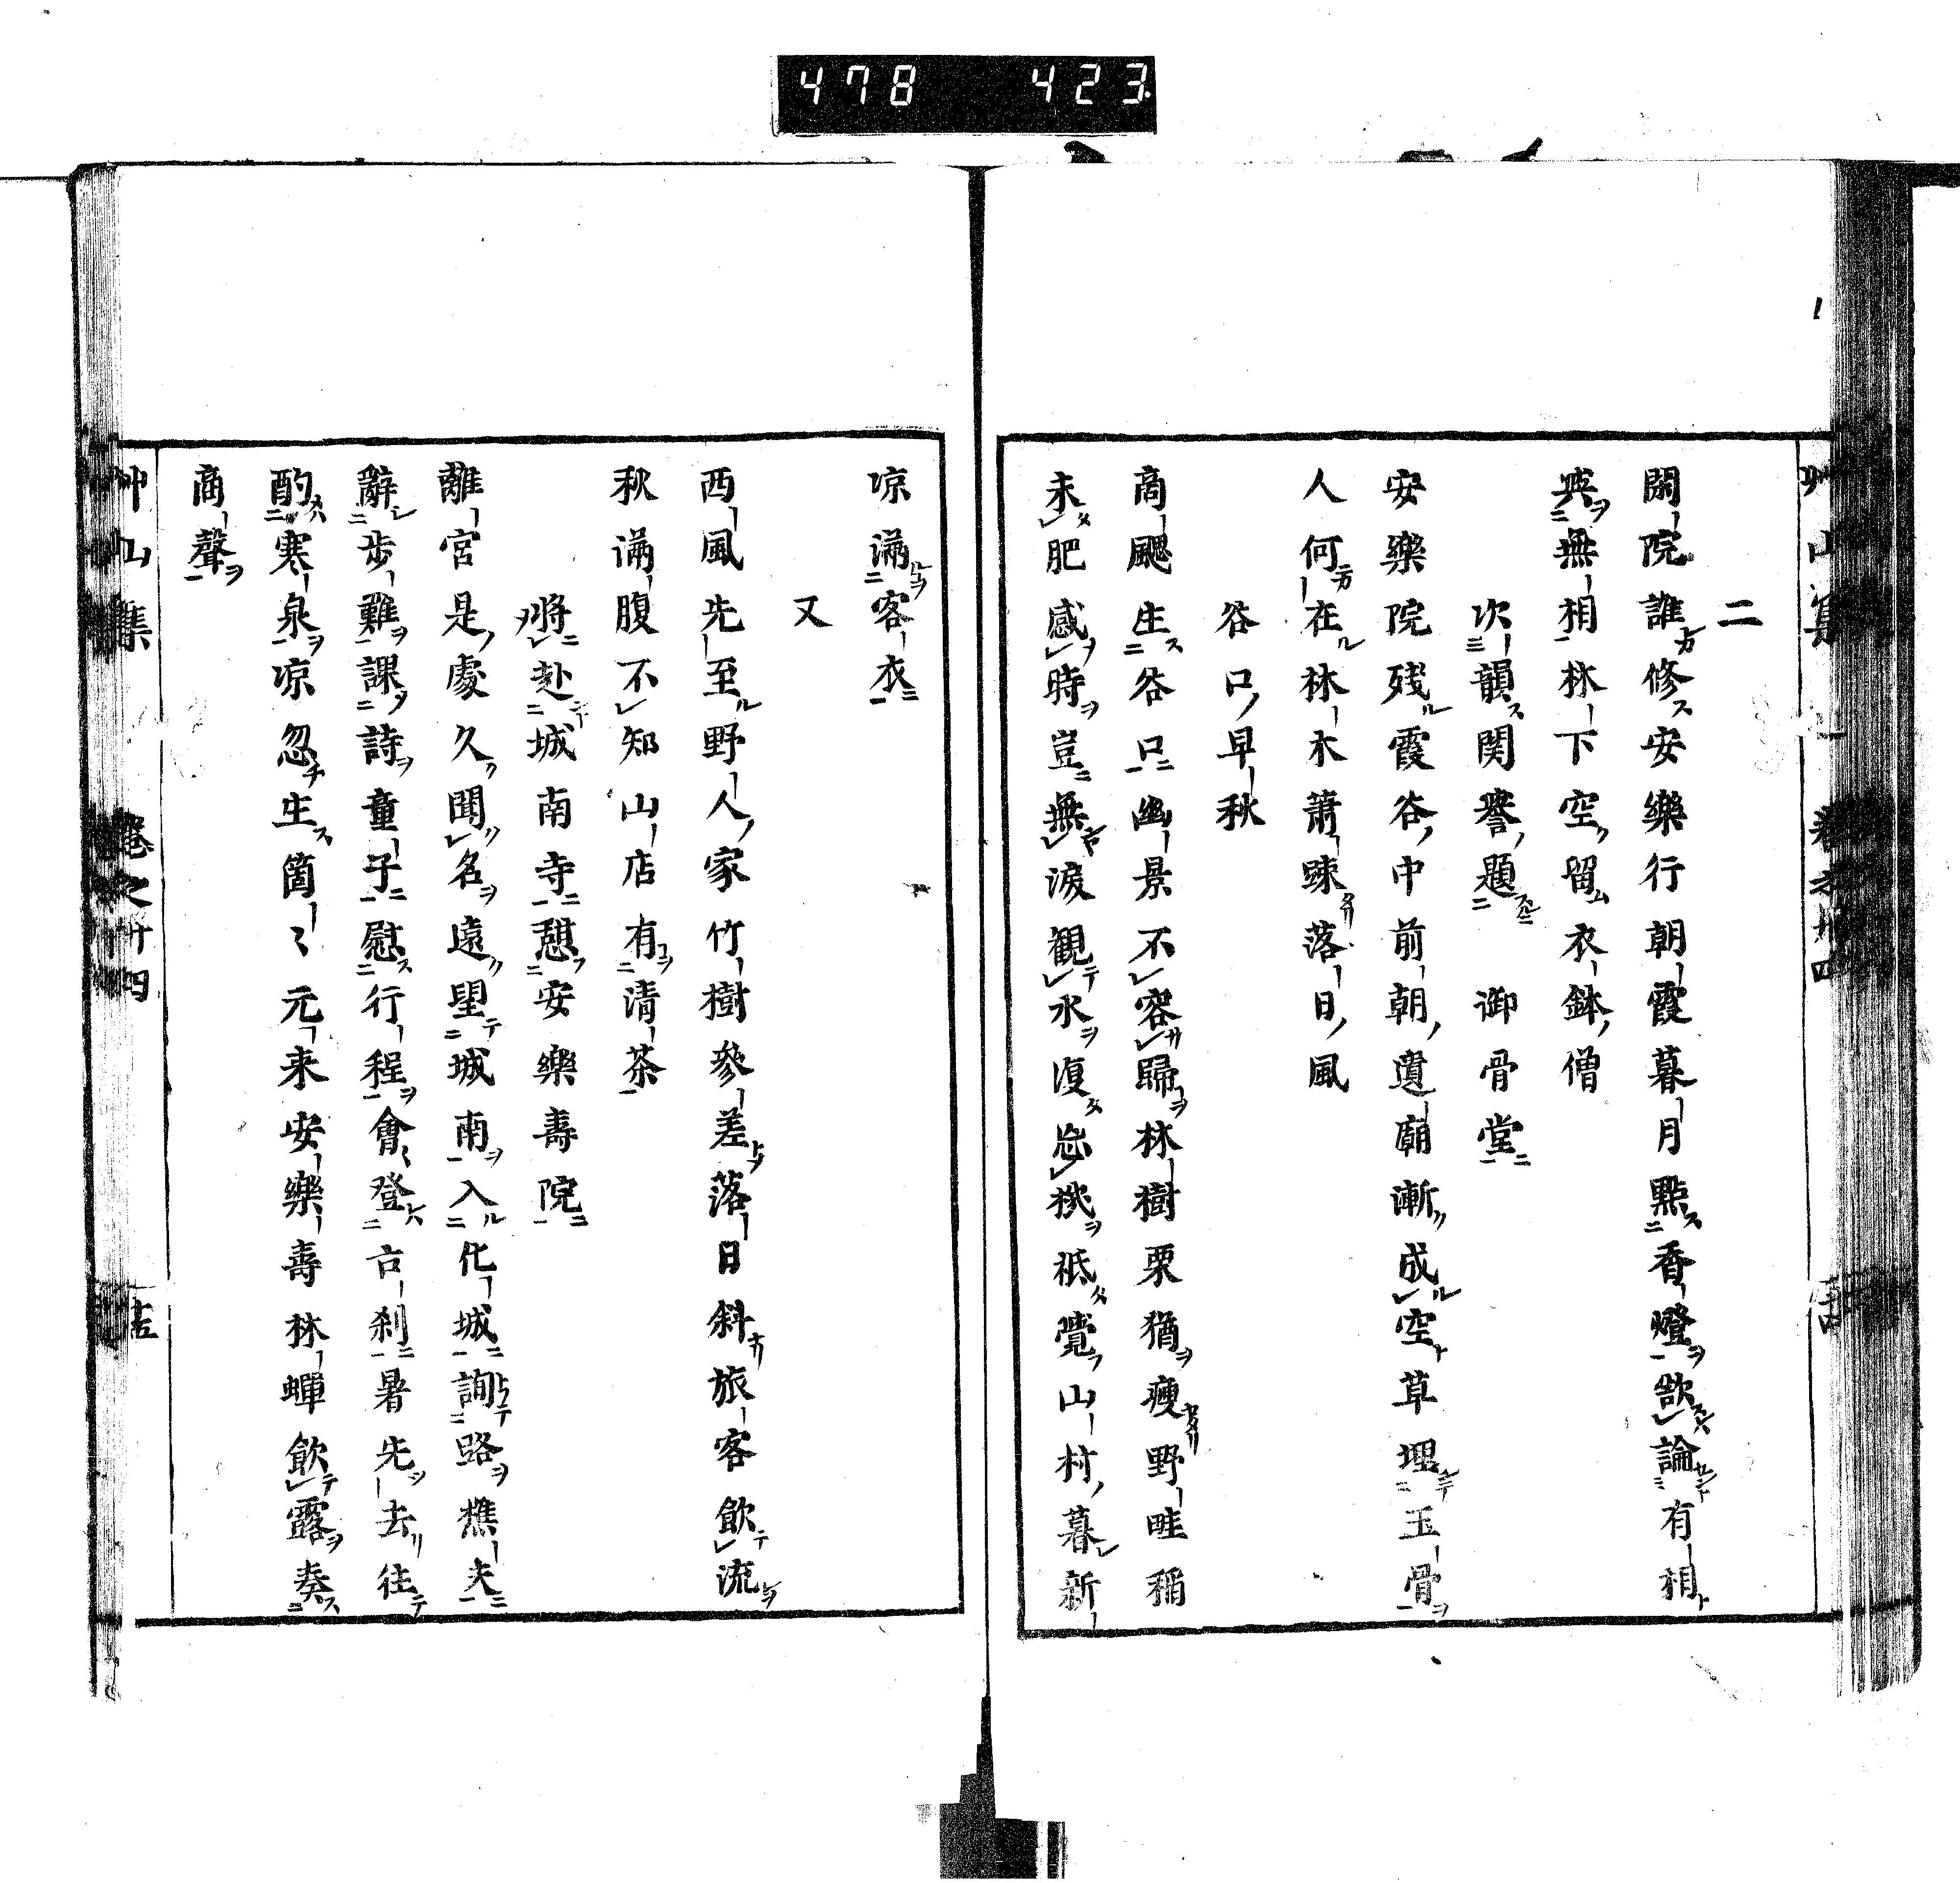 478 423
二
閑院誰修安樂行朝霞暮月點香燈欲論有相
與無相林下空留衣鉢僧
次韻関譽題 御骨堂
安樂院残霞谷中前朝遺廟漸成空草埋玉骨
人何在林木蕭踈落日風
谷口早秋
商飀生谷口幽景不容歸林樹栗猶瘦野畦稲
未肥感時豈無淚観水復忘機祗覺山村暮新
凉滿客衣
又
西風先至野人家竹樹參差落日斜旅客飲流
秋滿腹不知山店有清茶
将赴城南寺憩安樂壽院
離宮是處久聞名遠望城南入化城詢路樵夫
辭步難課詩童子慰行程會登古刹暑先去往
酌寒泉凉忽生箇〻元来安樂壽林蟬飲露奏
商聲
艸山集 卷之廿四